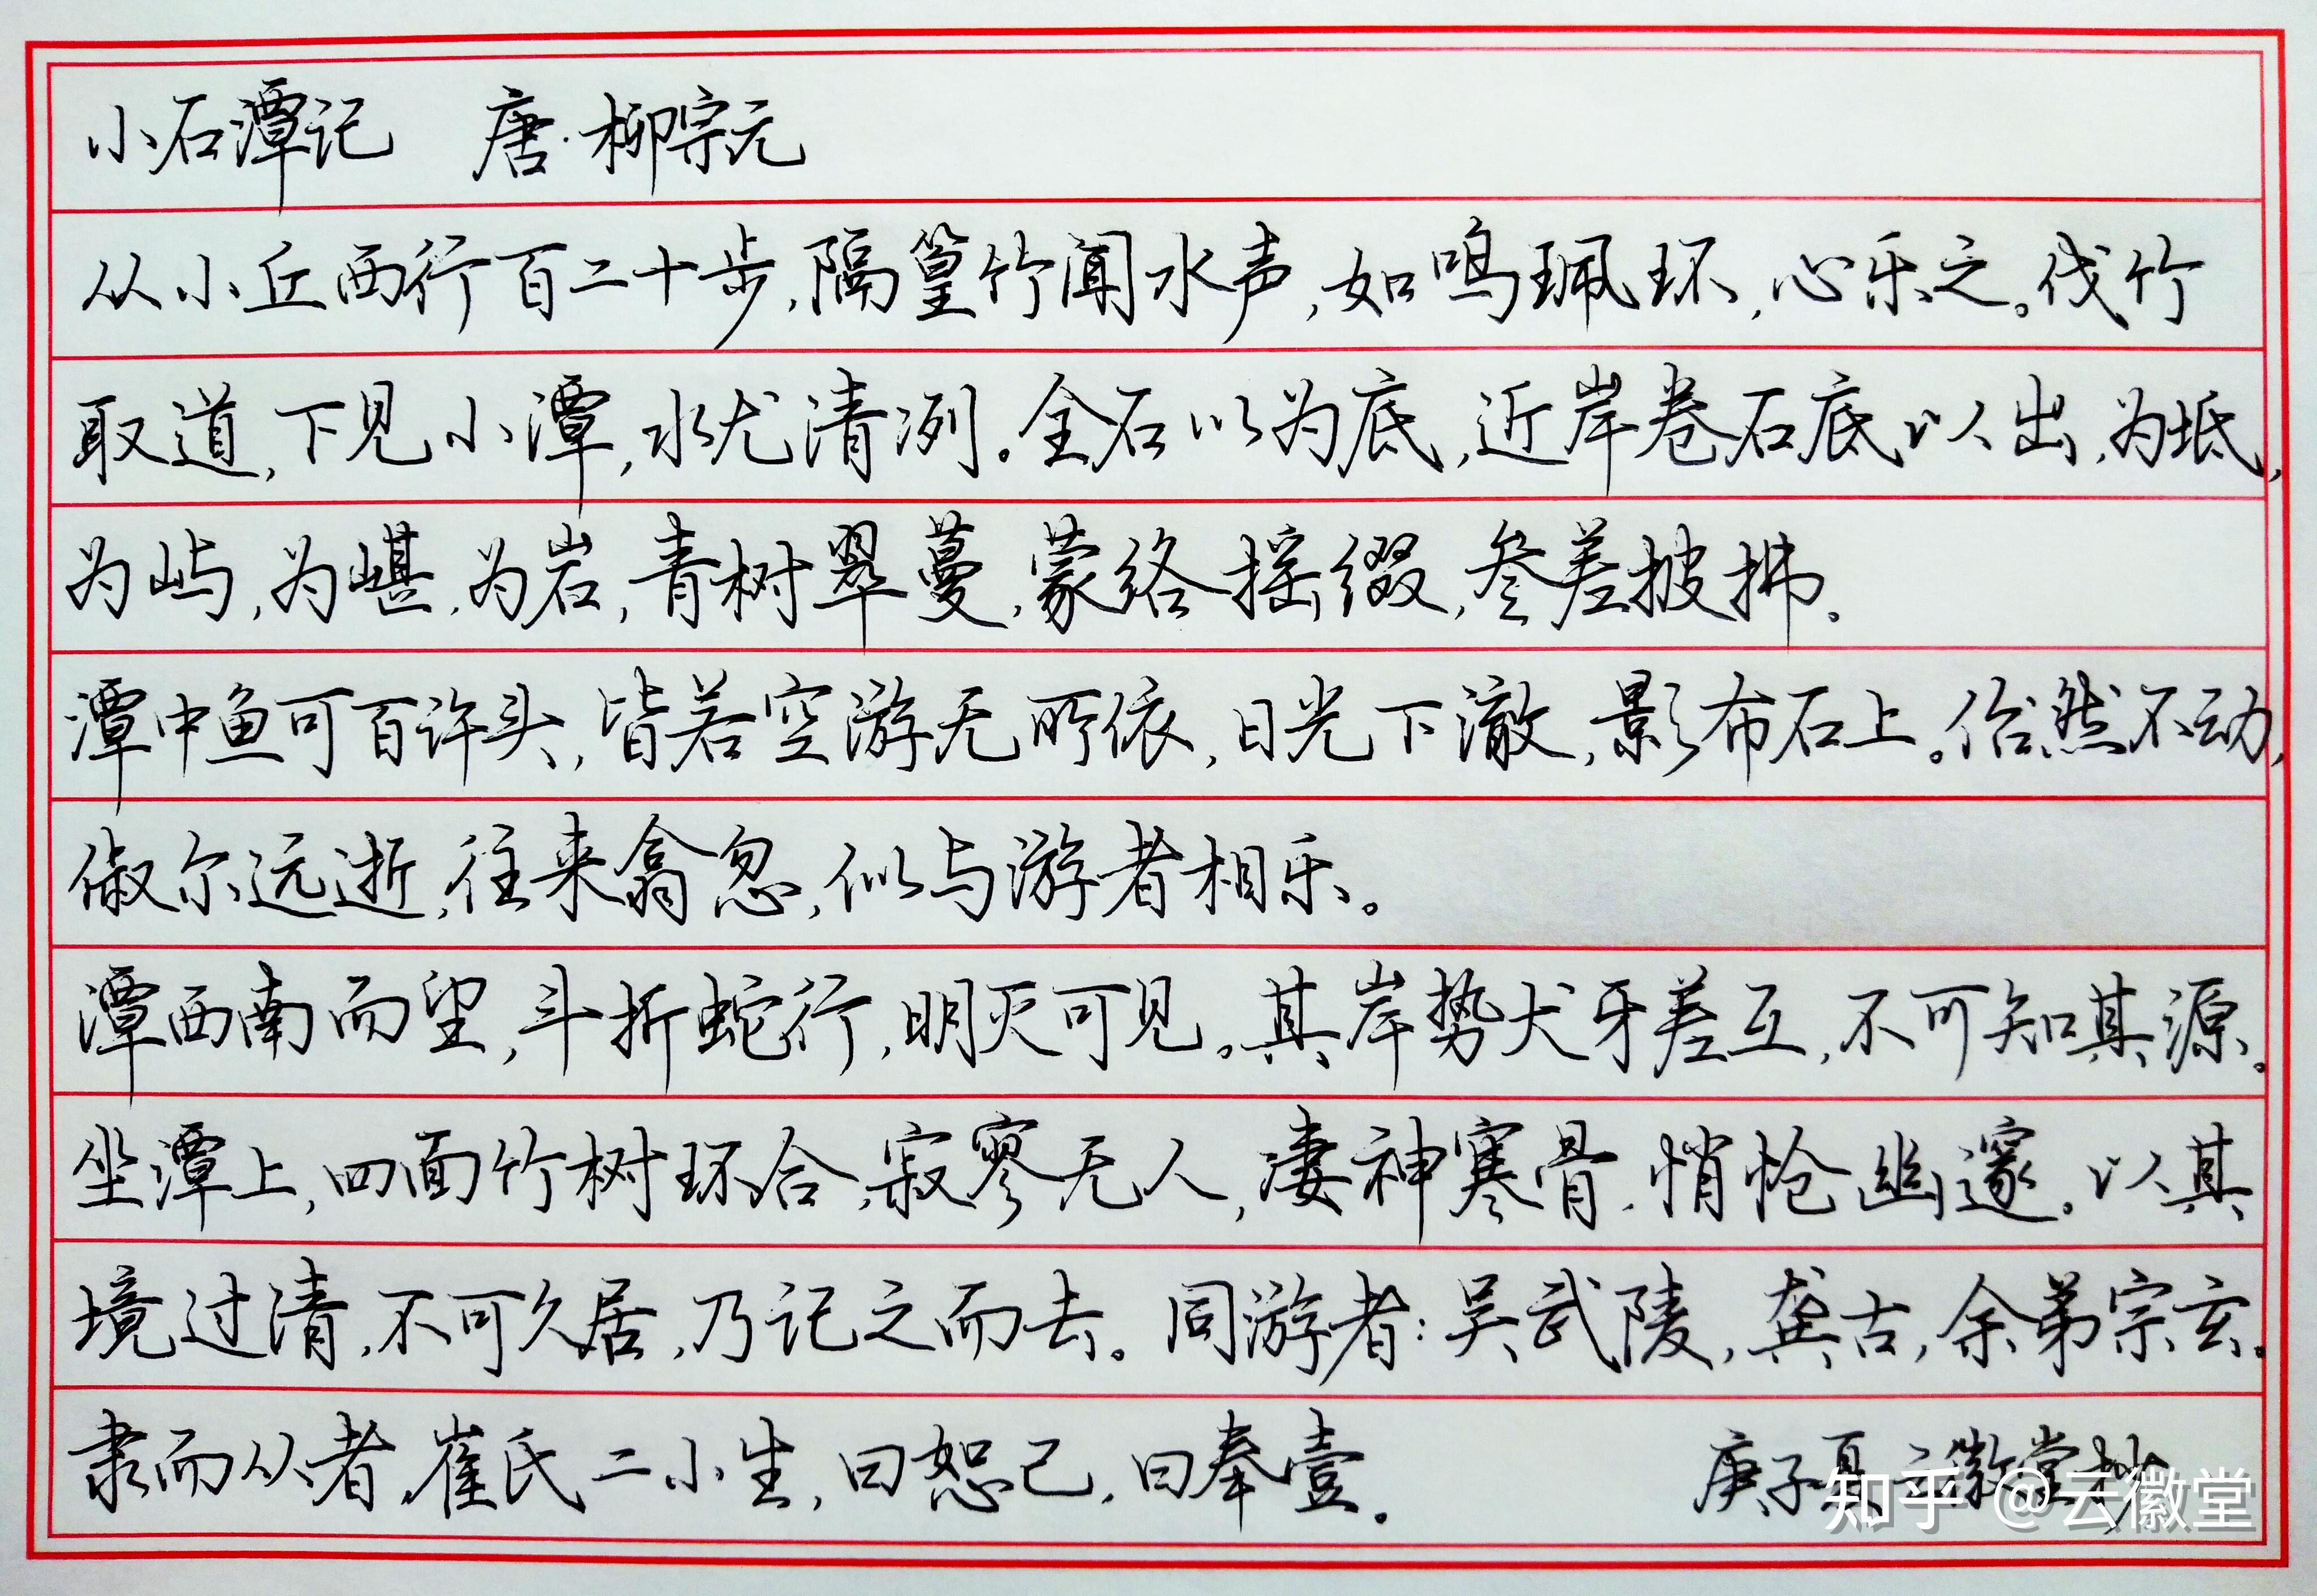 小石潭记 唐·柳宗元
从小丘西行百二十步,隔篁竹闻水声,如鸣珮环,心乐之。伐竹
取道,下见小潭,水尤清冽。全石以为底,近岸卷石底以出,为坻,
为屿,为嵁,为岩,青树翠蔓,蒙络摇缀,参差披拂。
潭中鱼可百许头,皆若空游无所依,日光下澈,影布石上。佁然不动,
俶尔远逝,往来翕忽,似与游者相乐。
潭西南而望,斗折蛇行,明灭可见。其岸势犬牙差互,不可知其源。
坐潭上,四面竹树环合,寂寥无人,凄神寒骨,悄怆幽邃。以其
境过清,不可久居,乃记之而去。同游者:吴武陵,龚古,余弟宗玄。
隶而从者,崔氏二小生,曰恕己,曰奉壹。 庚子夏云徽堂抄
知乎 @云徽堂